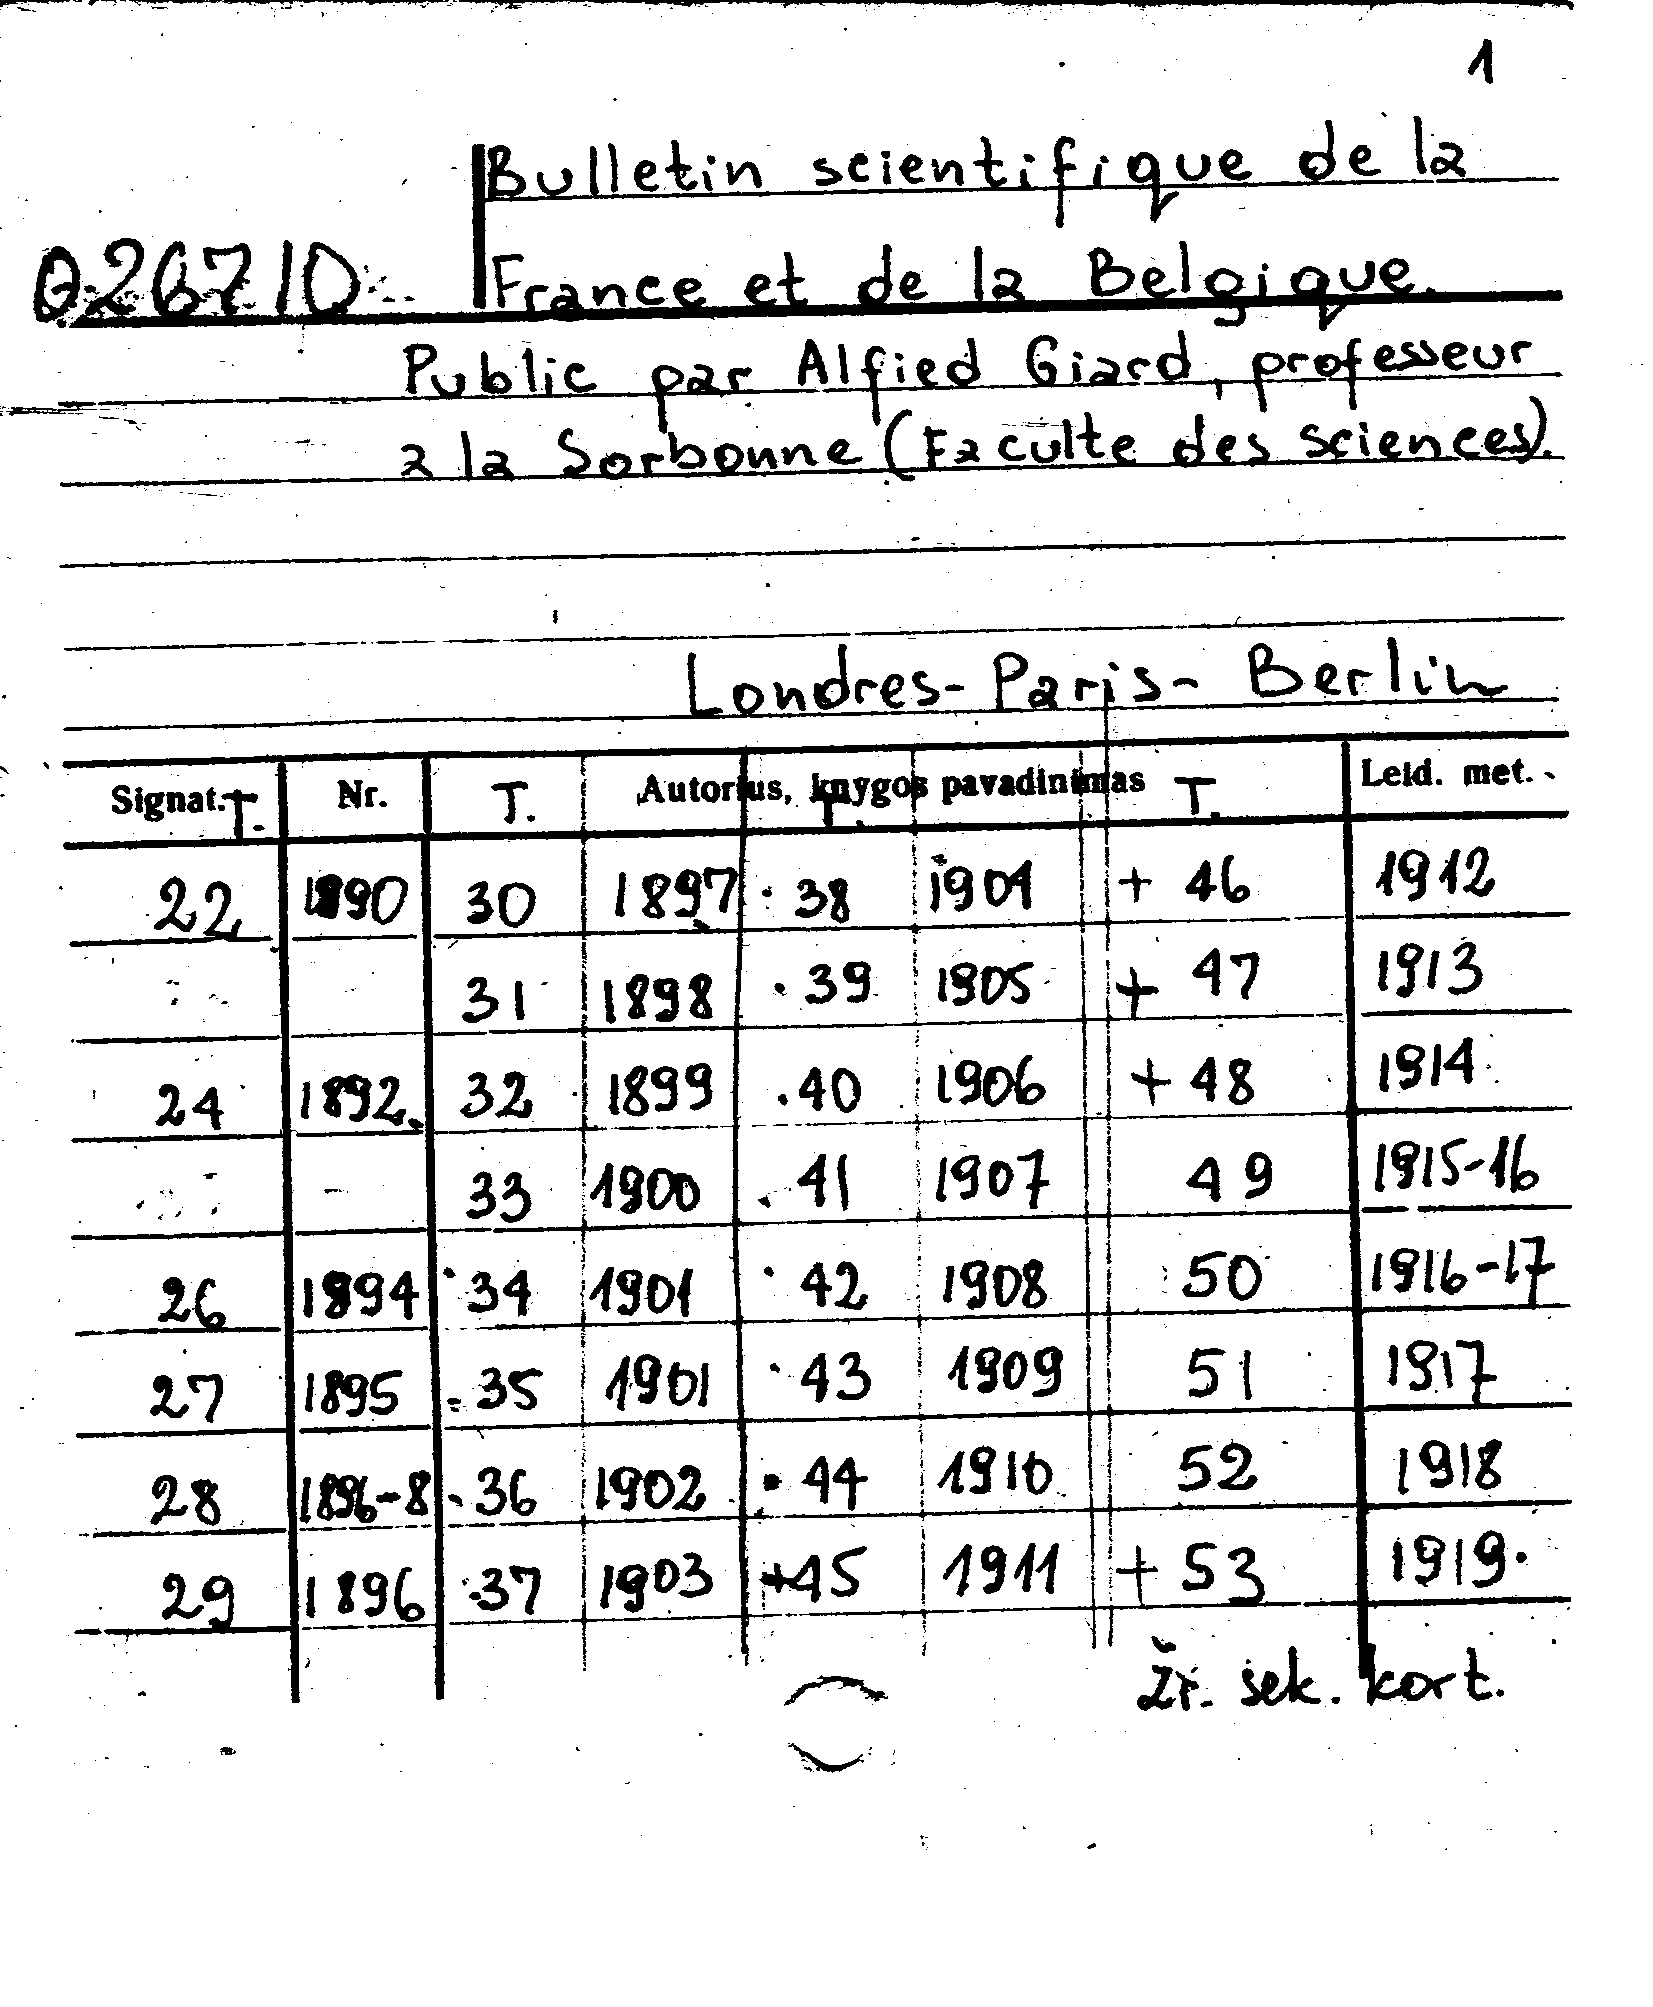 1
Bulletin scientifique de la
026710 France et de la Belgique.
Public par Alfied Giard, professeur
a la Sorbonne (Faculte des sciences).
Londres-Paris- Berlin
Signat. T. Nr. T. Autorius, knygos pavadinimas T. T. Leid. met.
22 1890 30 1897 · 38 1904 + 46 1912
31 1898 · 39 1905 + 47 1913
24 1892. 32 1899 · 40 1906 + 48 1914
33 1900 · 41 1907 49 1915-16
26 1894 · 34 1901 · 42 1908 50 1916-17
27 1895 · 35 1901 · 43 1909 51 1917
28 1896-8 · 36 1902 · 44 1910 52 1918
29 1896 · 37 1903 +45 1911 + 53 1919.
Žr. sek. kort.